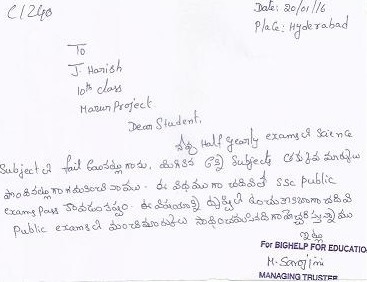 C1240
Date: 20/01/16
Place: Hyderabad
To
J. Harish
10th class
Marun Project.
Dear Student,
నీవు Half Yearly exams లో Science
Subject లో fail అయినట్లుగాను, మిగిలిన అన్ని Subjects లో తక్కువ మార్కులు
ఈ విధముగా చదివితే SSC public
exams pass కావడం కష్టం. ఈ విషయాన్ని దృష్టిలో
public exams లో మంచి మార్కులు
ఇట్లు
For BIGHELP FOR EDUCATIO
M. Sarojini
MANAGING TRUSTEE